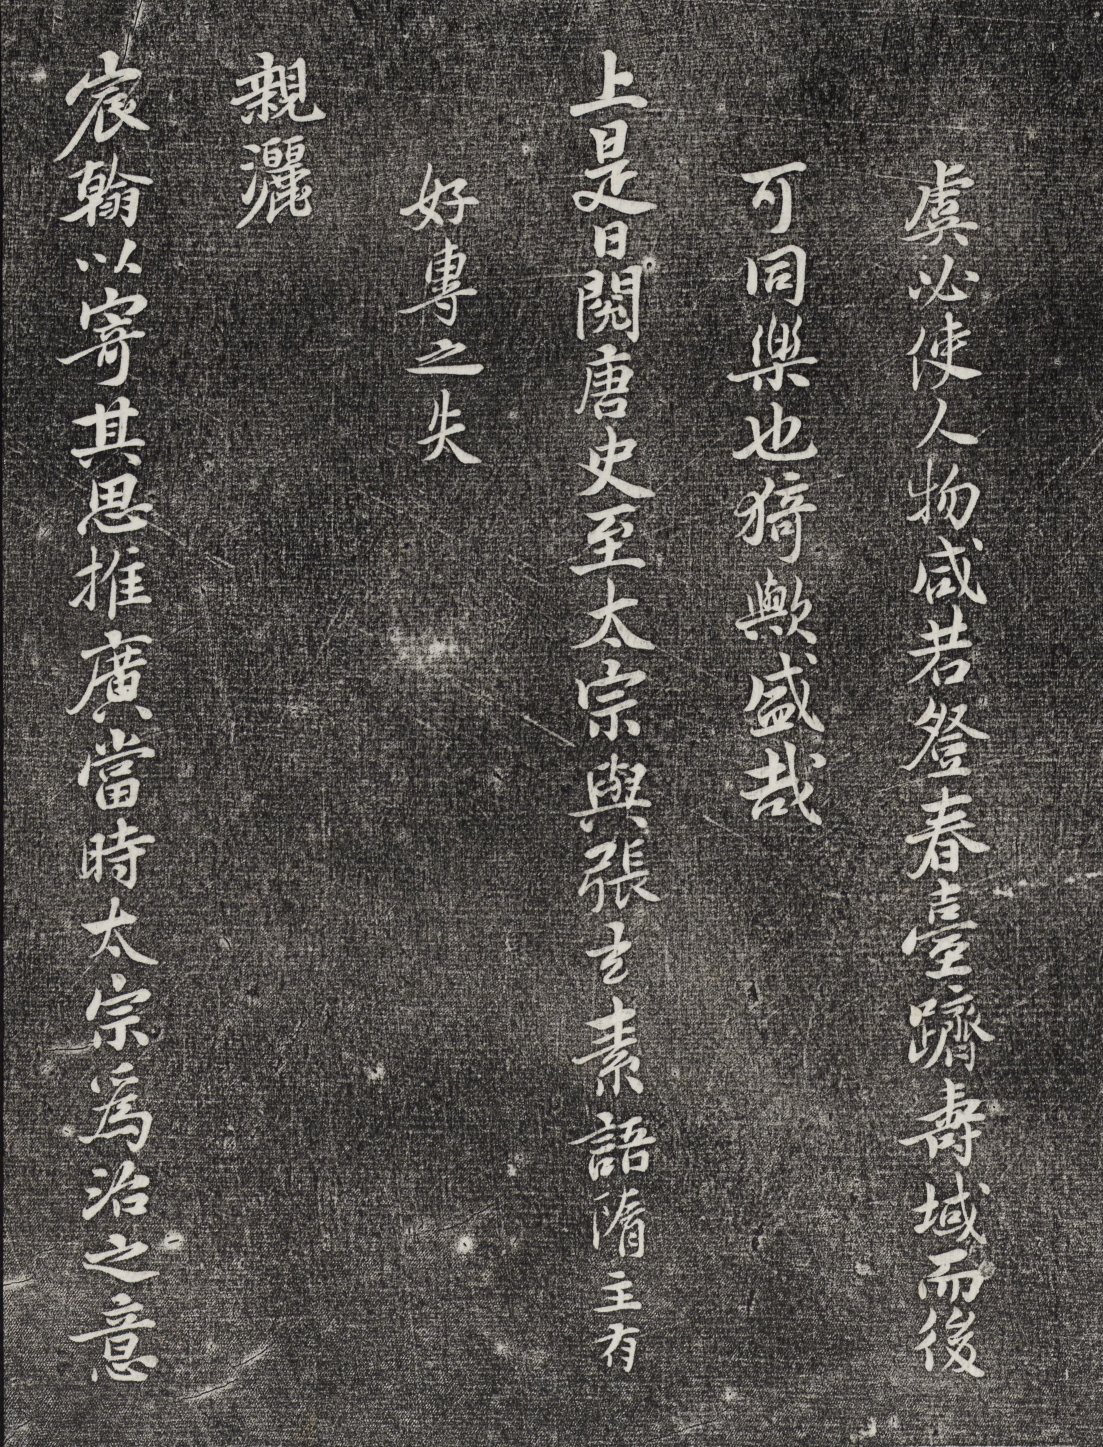 虞必使人物咸若登春臺躋壽域而後
可同樂也猗歟盛哉
上是日閱唐史至太宗與張玄素語隋主有
好專之失
親灑
宸翰以寄其思推廣當時太宗為治之意